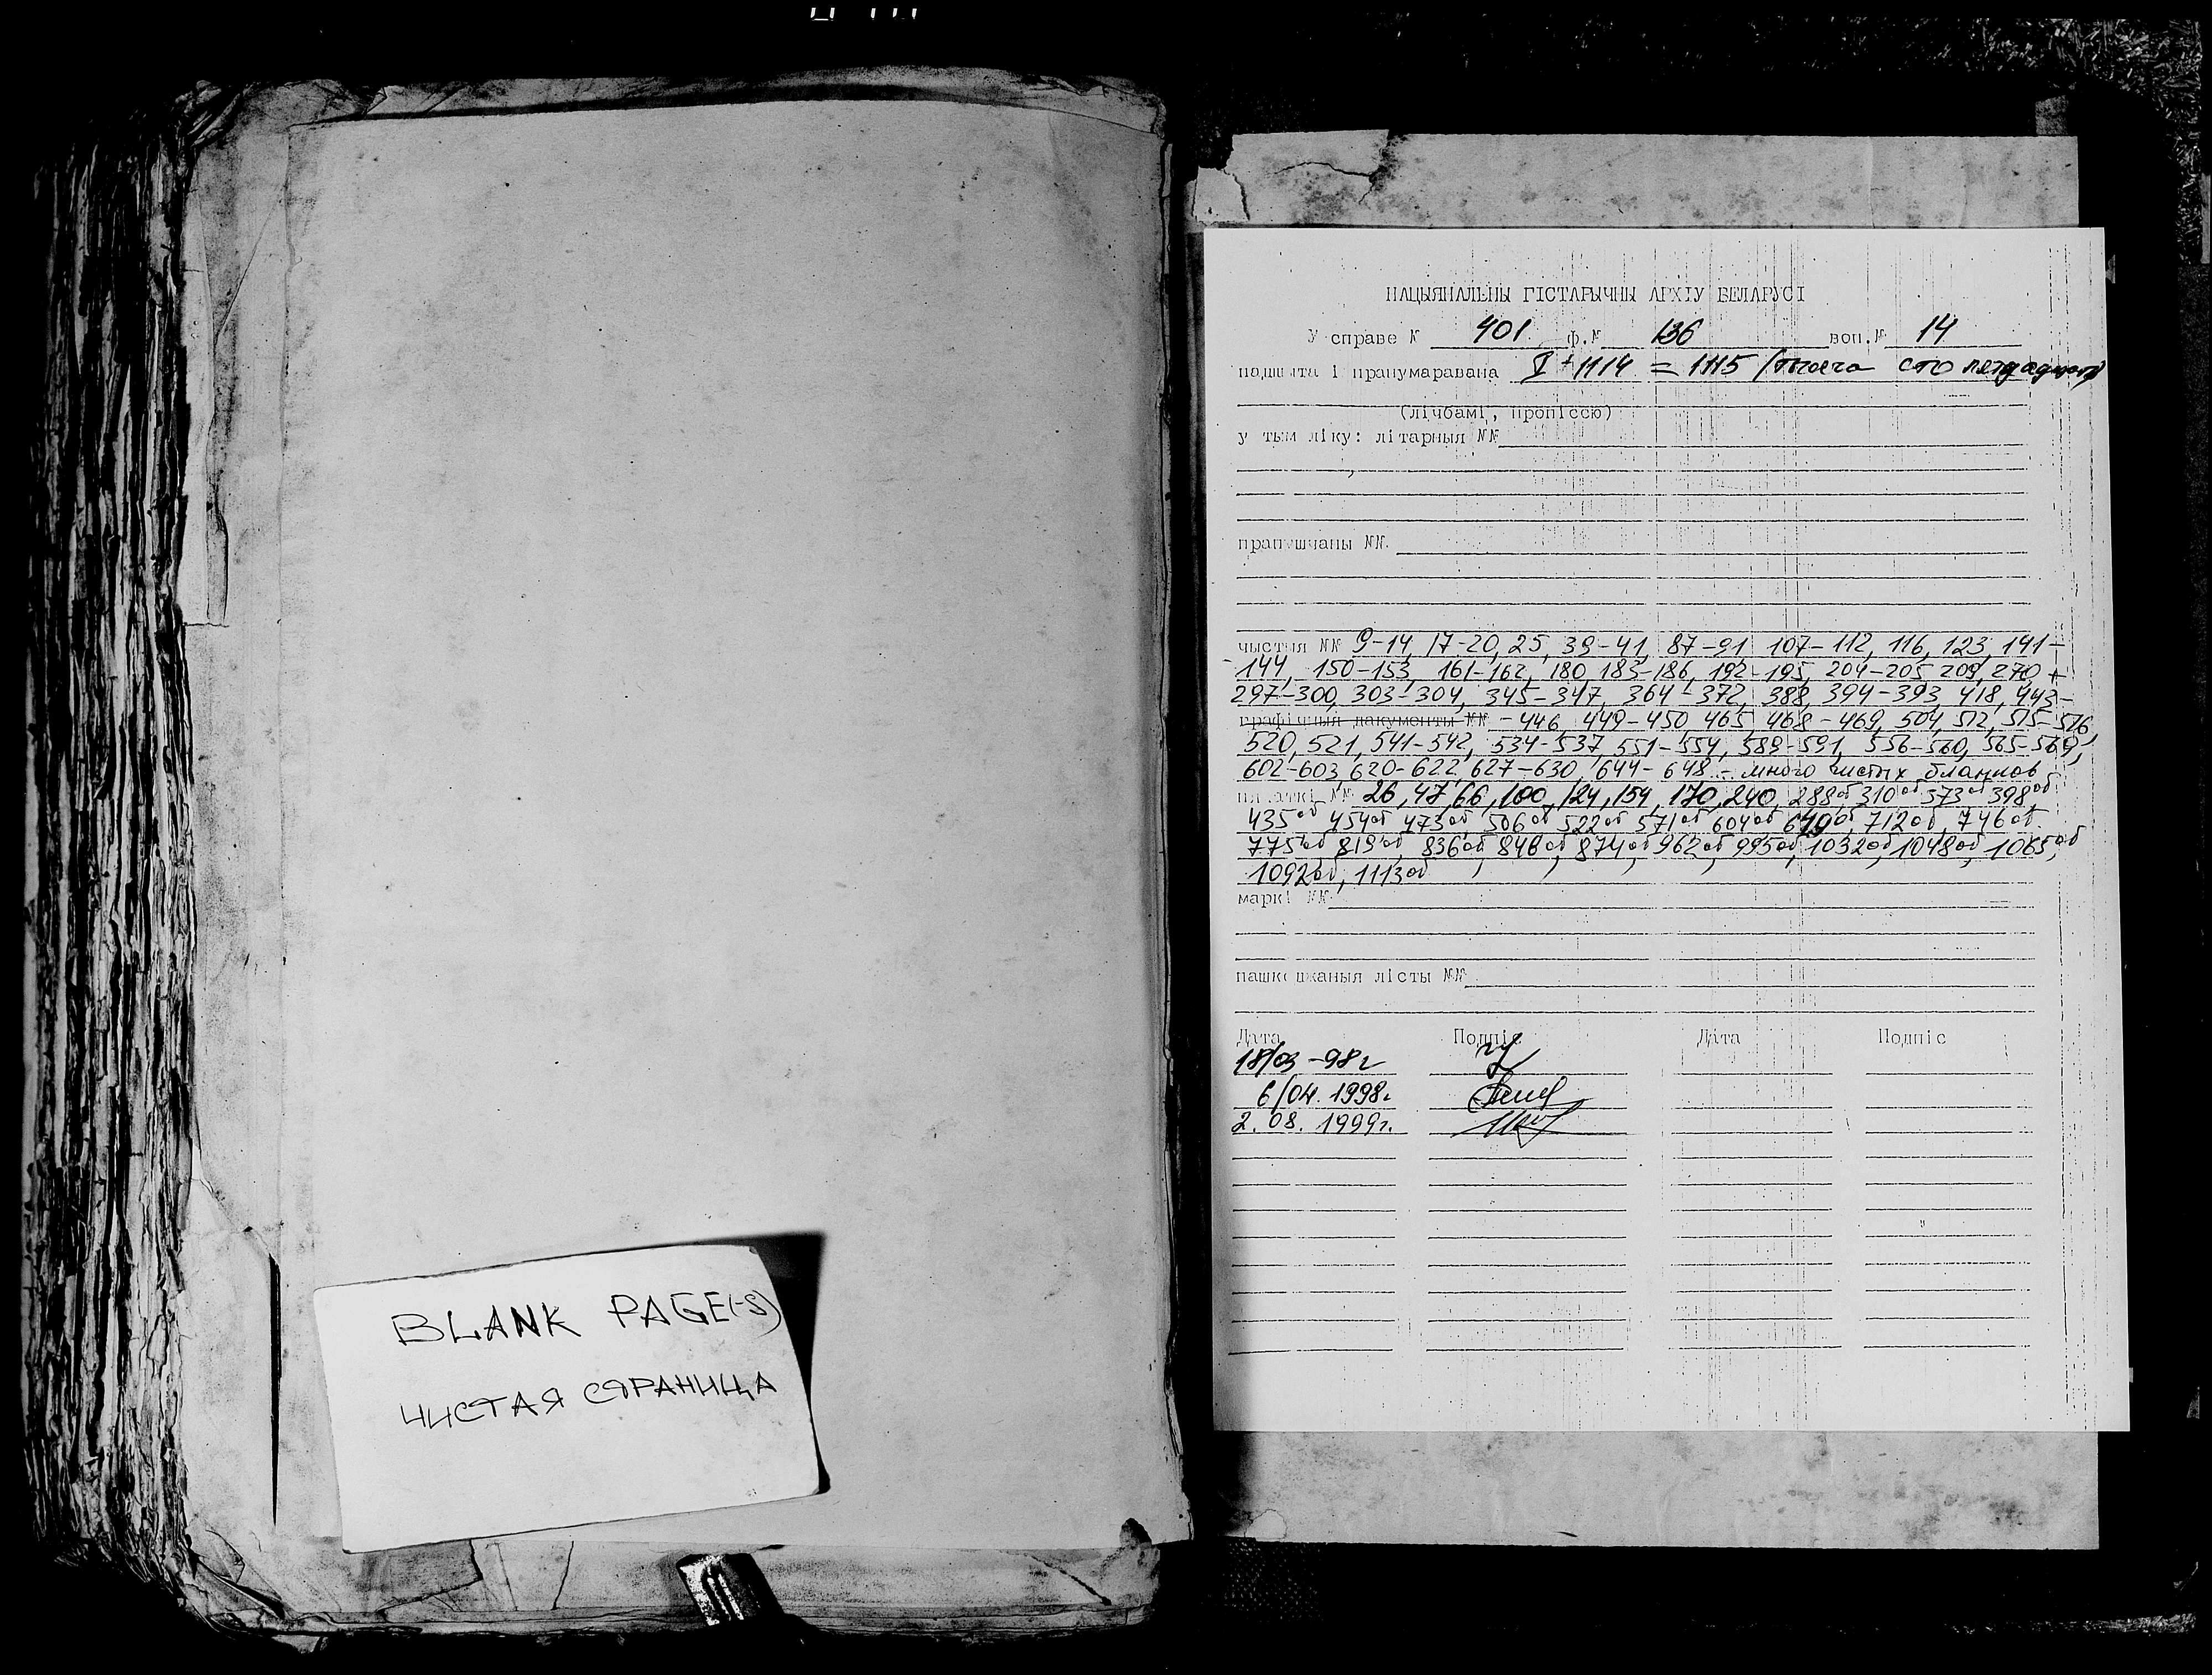 BLANK PAGE(-S)
ЧИСТАЯ СТРАНИЦА
НАЦЫЯНАЛЬНЫ ГІСТАРЫЧНЫ АРХІУ БЕЛАРУСІ
У справе № 401 ф.№ 136 воп.№ 14
падшыта і пранумаравана I + 1114 = 1115 /тысяча сто пятнадцать/
(лічбамі, пропіссю)
у тым ліку: літарныя №№
прапушчаны №№
чыстыя №№ 9-14, 17-20, 25, 39-41, 87-91, 107-112, 116, 123, 141-
144, 150-153, 161-162, 180, 183-186, 192-195, 204-205, 209, 270,
297-300, 303-304, 345-347, 364-372, 388, 394-393, 418, 443-
графічныя дакументы №№ -446, 449-450, 465, 468-469, 504, 512, 515-516,
520, 521, 541-542, 534-537, 551-554, 589-591, 556-560, 565-569,
602-603, 620-622, 627-630, 644-648 - много чистых бланков
пячаткі №№ 26, 47, 66, 100, 124, 154, 170, 240, 288об, 310об, 373об, 398об,
435об, 454об, 473об, 506об, 522об, 571об, 604об, 649об, 712об, 746об,
775об, 819об, 836об, 848об, 874об, 962об, 995об, 1032об, 1048об, 1065об,
1092об, 1113об
маркі №№
пашкоджаныя лісты №№
Дата Подпіс Дата Подпіс
18/03-98г
6/04.1998г.
2.08.1999г.